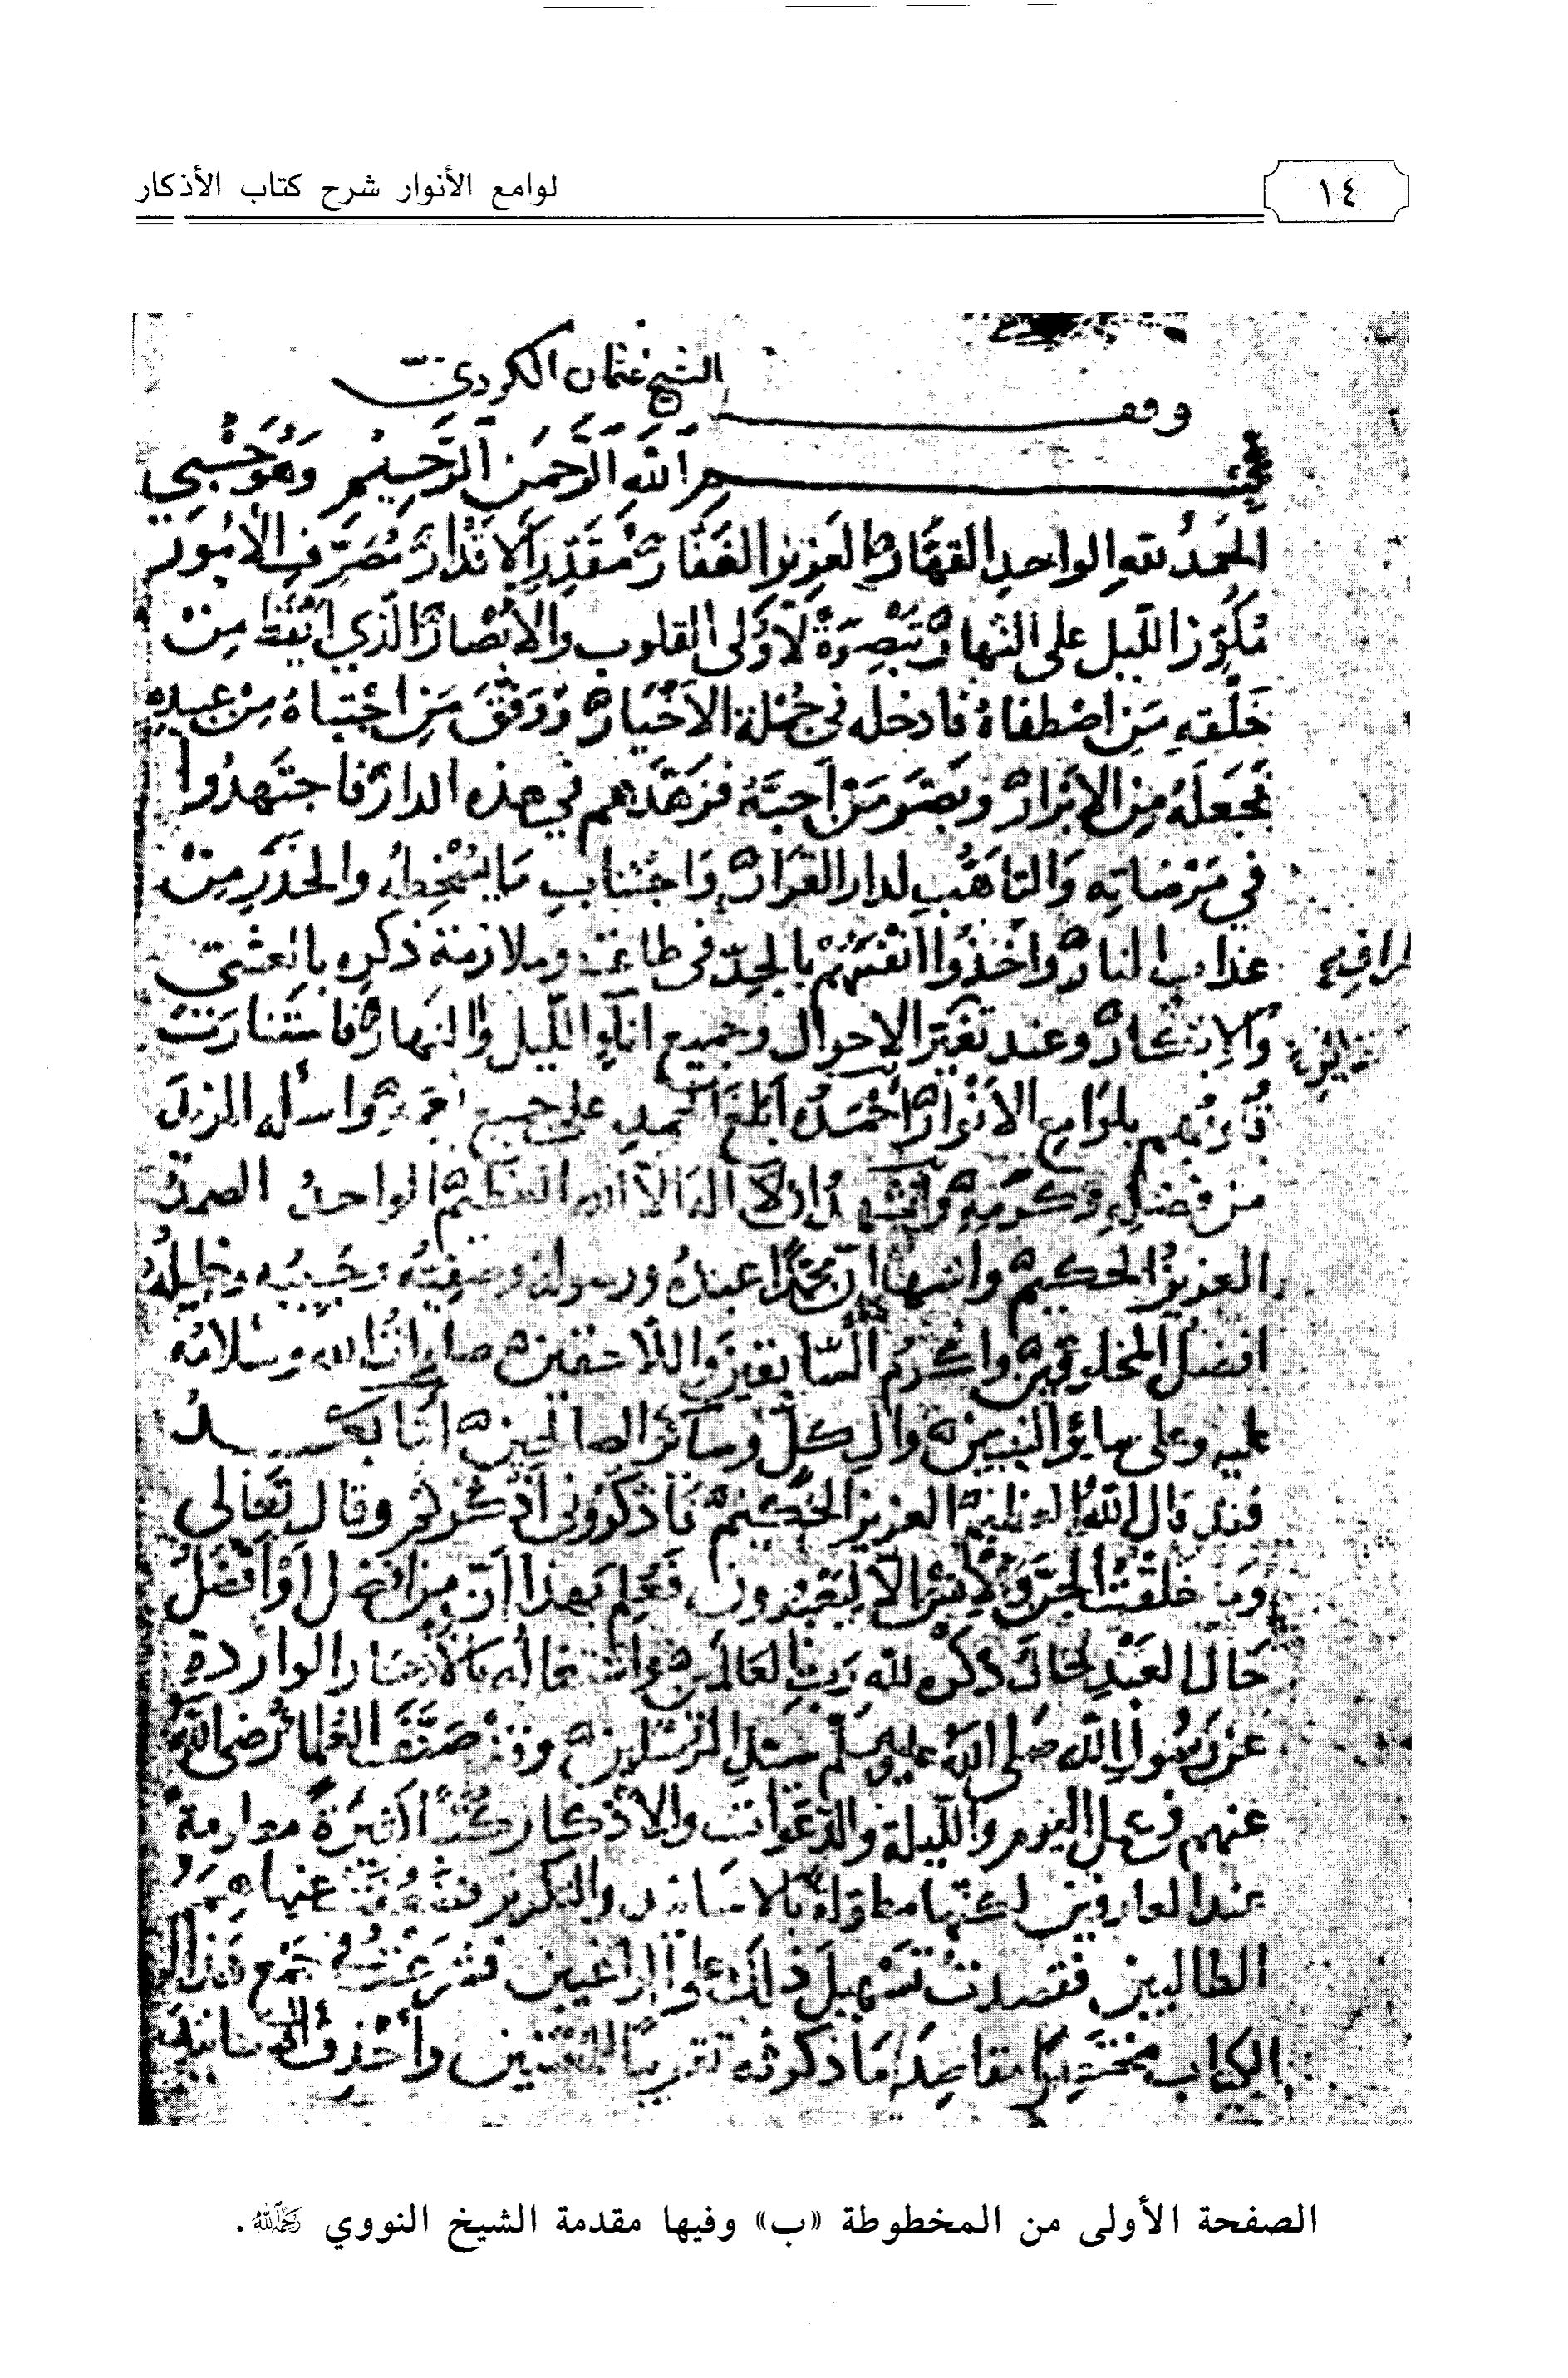 ١٤
لوامع الأنوار شرح كتاب الأذكار
الشيخ عثمان الكردي
وقف
بسم الله الرحمن الرحيم وهو حسبي
الحمد لله الواحد القهار العزيز الغفار مقدر الاقدار مصرف الامور
مكور الليل على النهار تبصرة لاولى القلوب والابصار الذي ايقظ من
خلقه من اصطفاه فادخله في جملة الاخيار ووفق من اجتباه من عبيده
فجعله من الابرار وبصر من احبه فزهدهم في هذه الدار فاجتهدوا
في مرضاته والتاهب لدار القرار واجتناب ما يسخطه والحذر من
عذاب النار واخذوا انفسهم بالجد في طاعته وملازمة ذكره بالعشي
والابكار وعند تغير الاحوال وجميع اناء الليل والنهار فاستنارت
قلوبهم بلوامع الانوار احمده ابلغ الحمد على جميع نعمه واسأله المزيد
من فضله وكرمه واشهد ان لا اله الا الله العظيم الواحد الصمد
العزيز الحكيم واشهد ان محمدا عبده ورسوله وصفيه وحبيبه وخليله
افضل المخلوقين واكرم السابقين واللاحقين صلوات الله وسلامه
عليه وعلى سائر النبيين وال كل وسائر الصالحين اما بعد
فقد قال الله العظيم العزيز الحكيم فاذكروني اذكركم وقال تعالى
وما خلقت الجن والانس الا ليعبدون فعلم بهذا ان من افضل او افضل
حال العبد حال ذكره لله رب العالمين واشتغاله بالاذكار الواردة
عن رسول الله صلى الله عليه وسلم سيد المرسلين وقد صنف العلما رضي الله
عنهم في عمل اليوم والليلة والدعوات والاذكار كتبا كثيرة معلومة
عند العارفين لكنها مطولة بالاسانيد والتكرير فضعفت عنها همم
الطالبين فقصدت تسهيل ذلك على الراغبين فشرعت في جمع هذا
الكتاب مختصرا مقاصد ما ذكرته تقريبا للمعتنين واحذف الاسانيد
الصفحة الأولى من المخطوطة «ب» وفيها مقدمة الشيخ النووي رحمه الله.